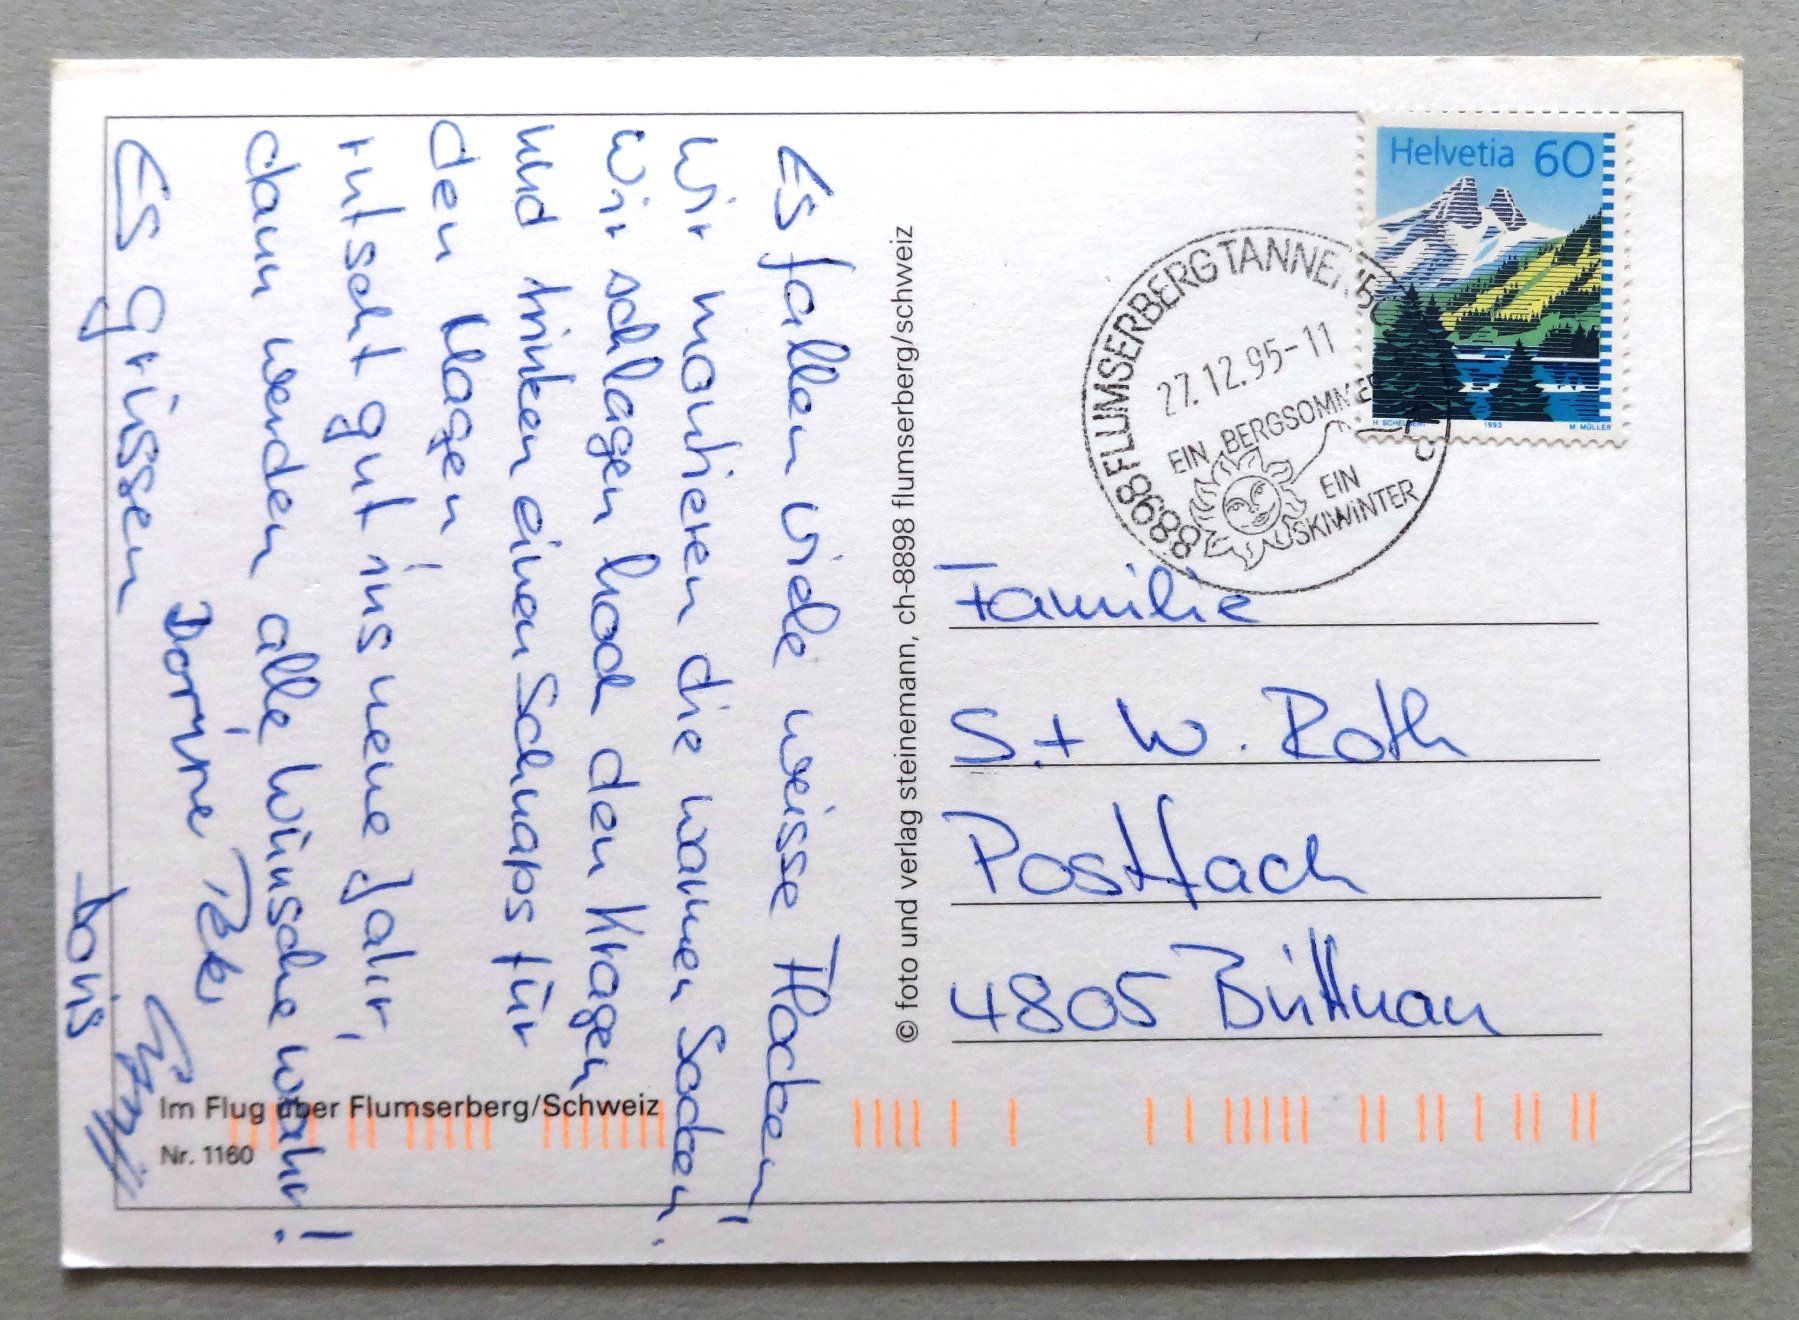 Es fallen viele weisse Flocken!
Wir montieren die warmen Socken.
Wir schlagen hoch den Kragen
und trinken einen Schnaps für
den Magen!
rutscht gut ins neue Jahr,
dann werden alle Wünsche wahr!
Es grüssen
Dorine
Doris
© foto und verlag steinemann, ch-8898 flumserberg/schweiz
Helvetia 60
H SCHELBERT 1993 M. MÜLLER
8898 FLUMSERBERG TANNENB
27.12.95-11
EIN BERGSOMMER
EIN
SKIWINTER
Familie
S. + W. Roth
Postfach
4805 Brittnau
Im Flug über Flumserberg/Schweiz
Nr. 1160